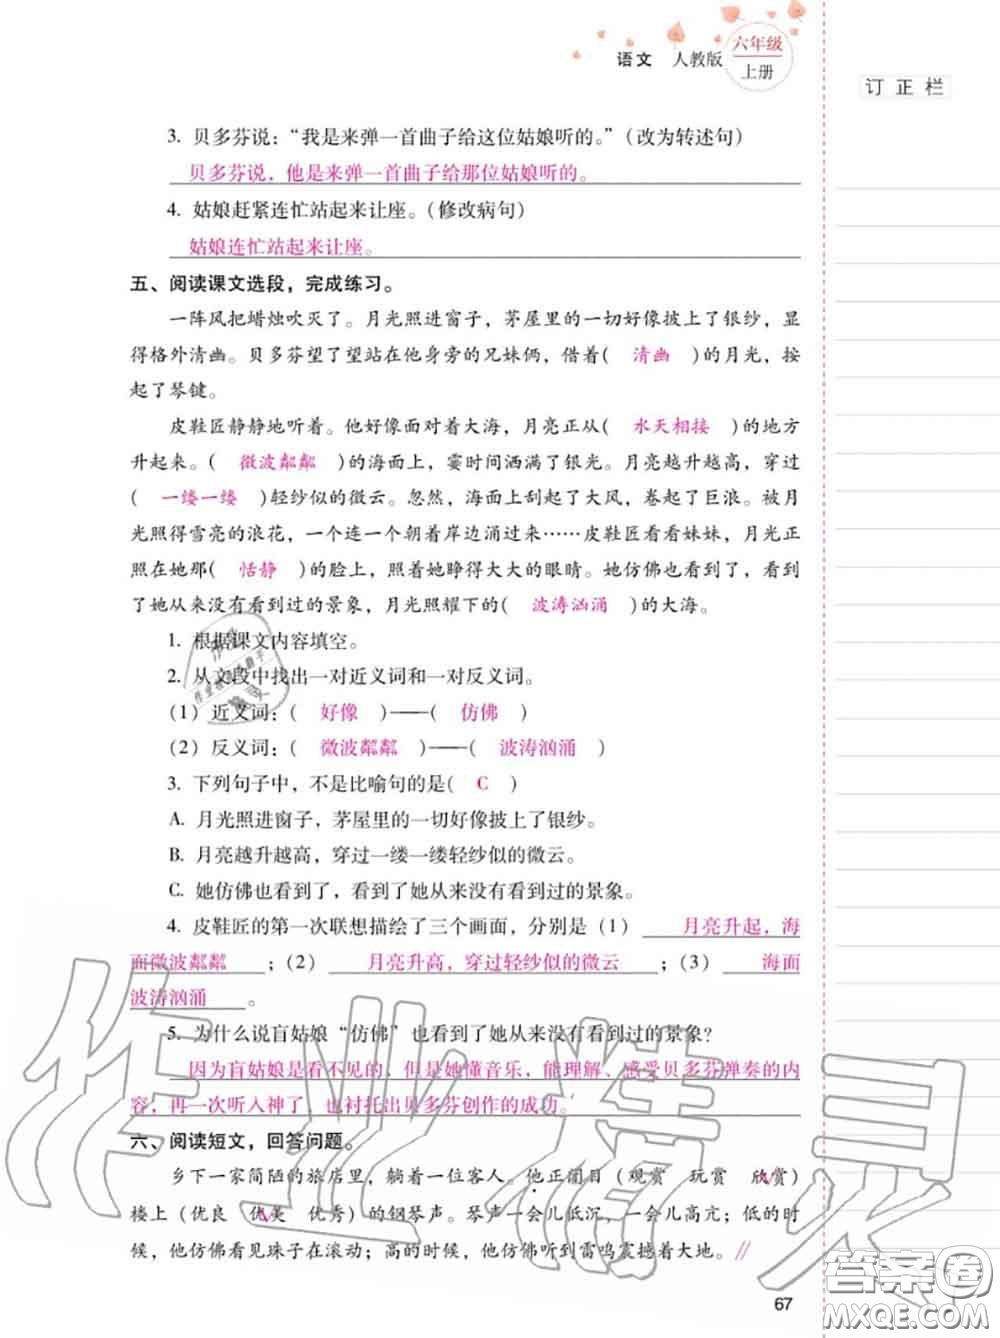 语文 人教版 六年级 上册
订正栏
3. 贝多芬说：“我是来弹一首曲子给这位姑娘听的。”（改为转述句）
贝多芬说，他是来弹一首曲子给那位姑娘听的。
4. 姑娘赶紧连忙站起来让座。（修改病句）
姑娘连忙站起来让座。
五、阅读课文选段，完成练习。
一阵风把蜡烛吹灭了。月光照进窗子，茅屋里的一切好像披上了银纱，显
得格外清幽。贝多芬望了望站在他身旁的兄妹俩，借着( 清幽 )的月光，按
起了琴键。
皮鞋匠静静地听着。他好像面对着大海，月亮正从( 水天相接 )的地方
升起来。( 微波粼粼 )的海面上，霎时间洒满了银光。月亮越升越高，穿过
( 一缕一缕 )轻纱似的微云。忽然，海面上刮起了大风，卷起了巨浪。被月
光照得雪亮的浪花，一个连一个朝着岸边涌过来……皮鞋匠看看妹妹，月光正
照在她那( 恬静 )的脸上，照着她睁得大大的眼睛。她仿佛也看到了，看到
了她从来没有看到过的景象，月光照耀下的( 波涛汹涌 )的大海。
1. 根据课文内容填空。
2. 从文段中找出一对近义词和一对反义词。
(1) 近义词：( 好像 )——( 仿佛 )
(2) 反义词：( 微波粼粼 )——( 波涛汹涌 )
3. 下列句子中，不是比喻句的是( C )
A. 月光照进窗子，茅屋里的一切好像披上了银纱。
B. 月亮越升越高，穿过一缕一缕轻纱似的微云。
C. 她仿佛也看到了，看到了她从来没有看到过的景象。
4. 皮鞋匠的第一次联想描绘了三个画面，分别是（1） 月亮升起，海
面微波粼粼 ；（2） 月亮升高，穿过轻纱似的微云 ；（3） 海面
波涛汹涌 。
5. 为什么说盲姑娘“仿佛”也看到了她从来没有看到过的景象？
因为盲姑娘是看不见的，但是她懂音乐，能理解、感受贝多芬弹奏的内
容，再一次听入神了，也衬托出贝多芬创作的成功。
六、阅读短文，回答问题。
乡下一家简陋的旅店里，躺着一位客人。他正闭目（观赏 玩赏 欣赏）
楼上（优良 优美 优秀）的钢琴声。琴声一会儿低沉，一会儿高亢；低的时
候，他仿佛看见珠子在滚动；高的时候，他仿佛听到雷鸣震撼着大地。//
67
作业精灵
答案圈
MXQE.COM